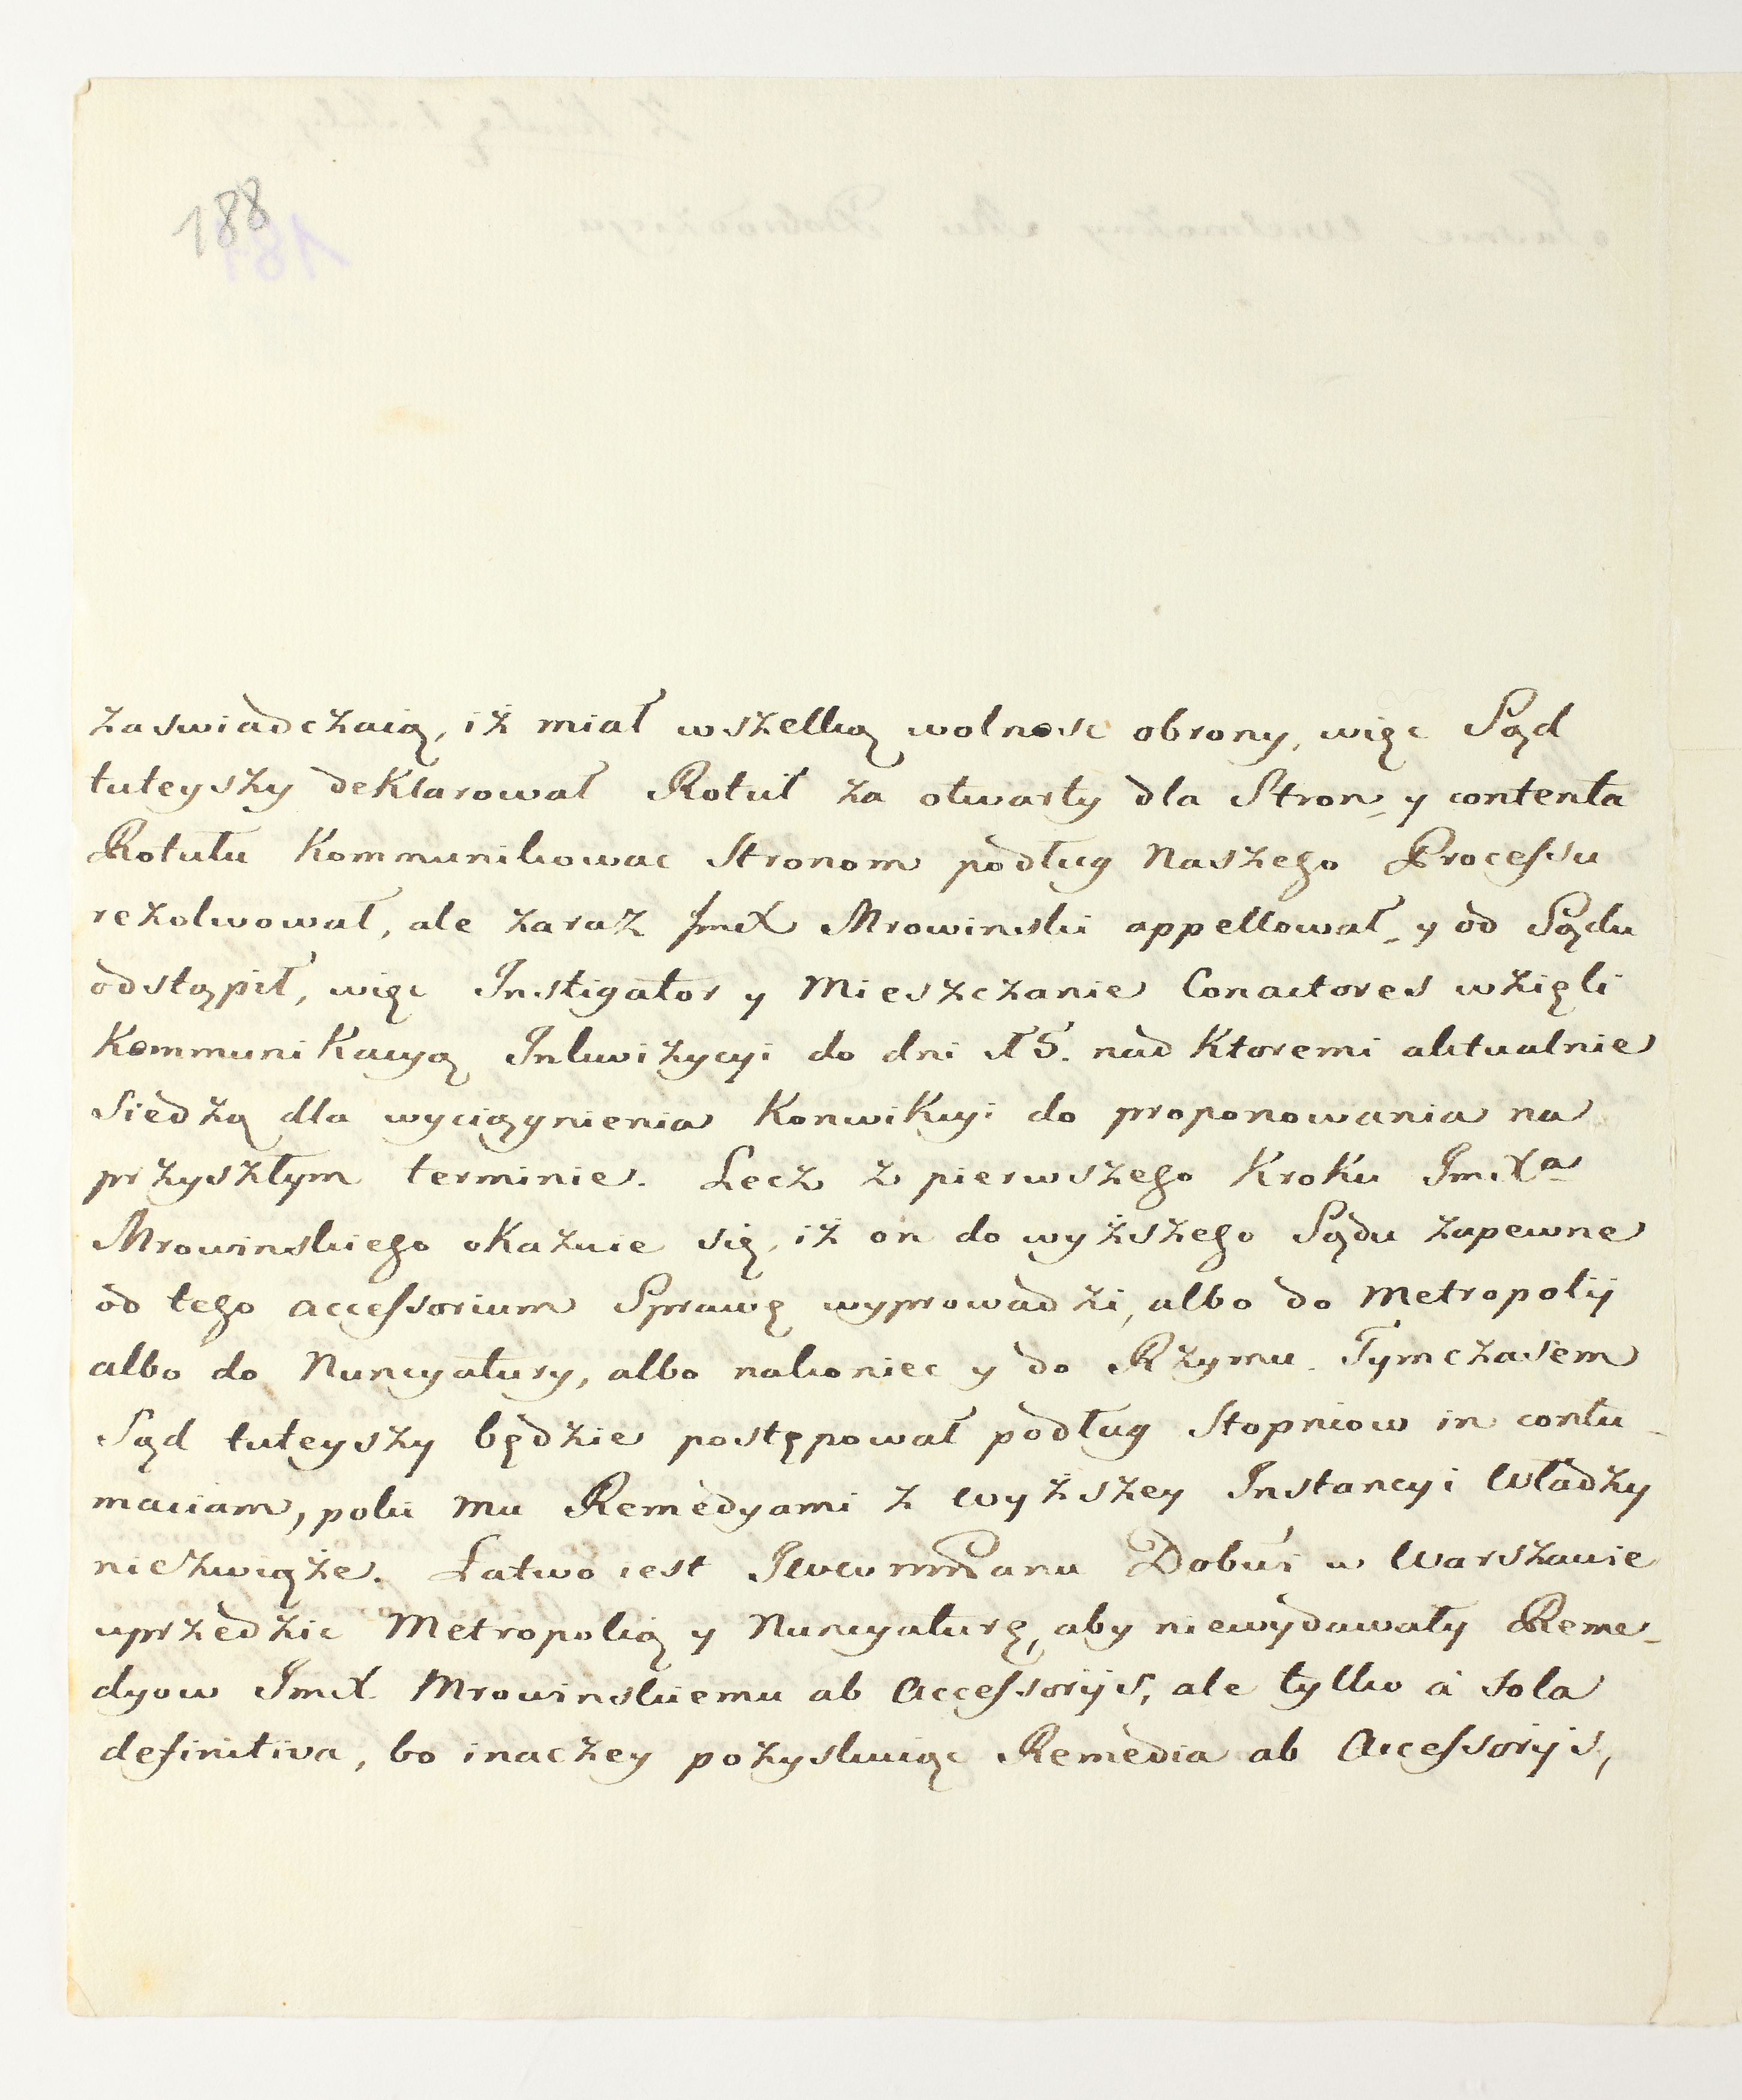 188
zaswiadczaią, iż miał wszelką wolnosc obrony, więc Sąd
tuteyszy deklarował Rotuł za otwarty dla Stron, y contenta
Rotułu Kommunikowac Stronom podług Naszego Processu
rezolwował, ale zaraz JmX Mrowinski appellował, y od Sądu
odstąpił, więc Instigator y Mieszczanie Conactores wzięli
Kommunikacyą Inkwizycyi do dni 15. nad Ktoremi aktualnie
Siedzą dla wyciągnienia Konwikcyi do proponowania na
przyszłym terminie. Lecz z pierwszego Kroku JmXa
Mrowinskiego okazuie się, iż on do wyższego Sądu zapewne
od tego accessorium Sprawę wyprowadzi, albo do Metropolij
albo do Nuncyatury, albo nakoniec y do Rzymu. Tymczasem
Sąd tuteyszy będzie postępował podług Stopniow in contu-
maciam, poki mu Remedyami z wyższey Instancyi Władzy
niezwiąże. Łatwo iest JWWmmPanu Dobui w Warszawie
uprzedzic Metropolią y Nuncyaturę, aby niewydawały Reme-
dyow JmX Mrowinskiemu ab Accessorijs, ale tylko à sola
definitiva, bo inaczey pozyskuiąc Remedia ab Accessorijs,